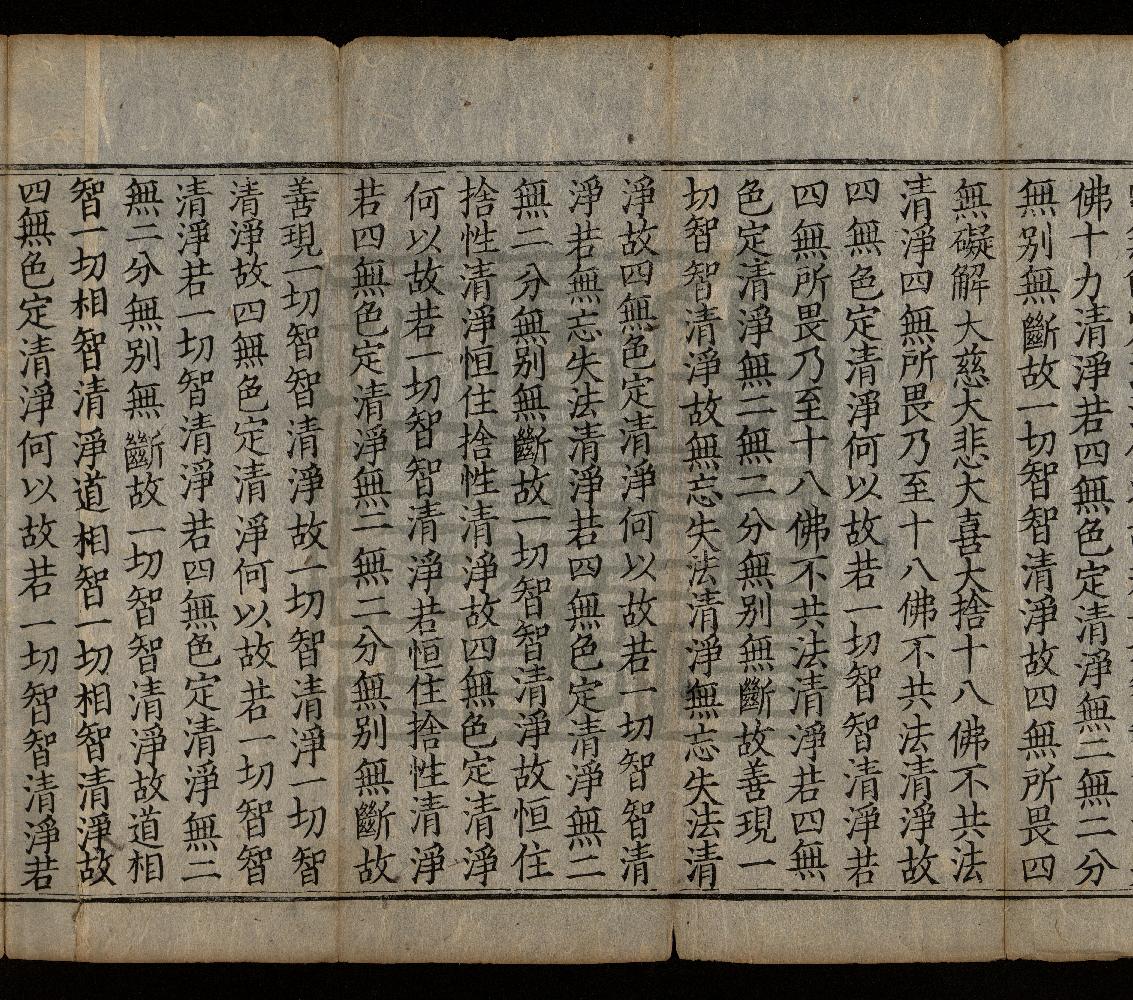 佛十力清淨若四無色定清淨無二無二分
無別無斷故一切智智清淨故四無所畏四
無礙解大慈大悲大喜大捨十八佛不共法
清淨四無所畏乃至十八佛不共法清淨故
四無色定清淨何以故若一切智智清淨若
四無所畏乃至十八佛不共法清淨若四無
色定清淨無二無二分無別無斷故善現一
切智智清淨故無忘失法清淨無忘失法清
淨故四無色定清淨何以故若一切智智清
淨若無忘失法清淨若四無色定清淨無二
無二分無別無斷故一切智智清淨故恒住
捨性清淨恒住捨性清淨故四無色定清淨
何以故若一切智智清淨若恒住捨性清淨
若四無色定清淨無二無二分無別無斷故
善現一切智智清淨故一切智清淨一切智
清淨故四無色定清淨何以故若一切智智
清淨若一切智清淨若四無色定清淨無二
無二分無別無斷故一切智智清淨故道相
智一切相智清淨道相智一切相智清淨故
四無色定清淨何以故若一切智智清淨若